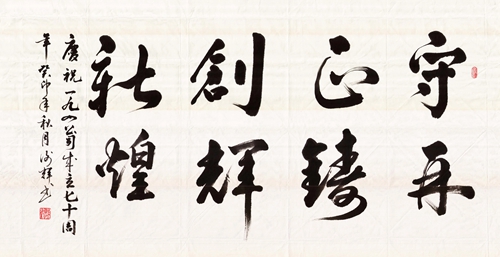 守正創新
再鑄輝煌
慶祝一九成立七十周
年 癸卯年秋月輝書